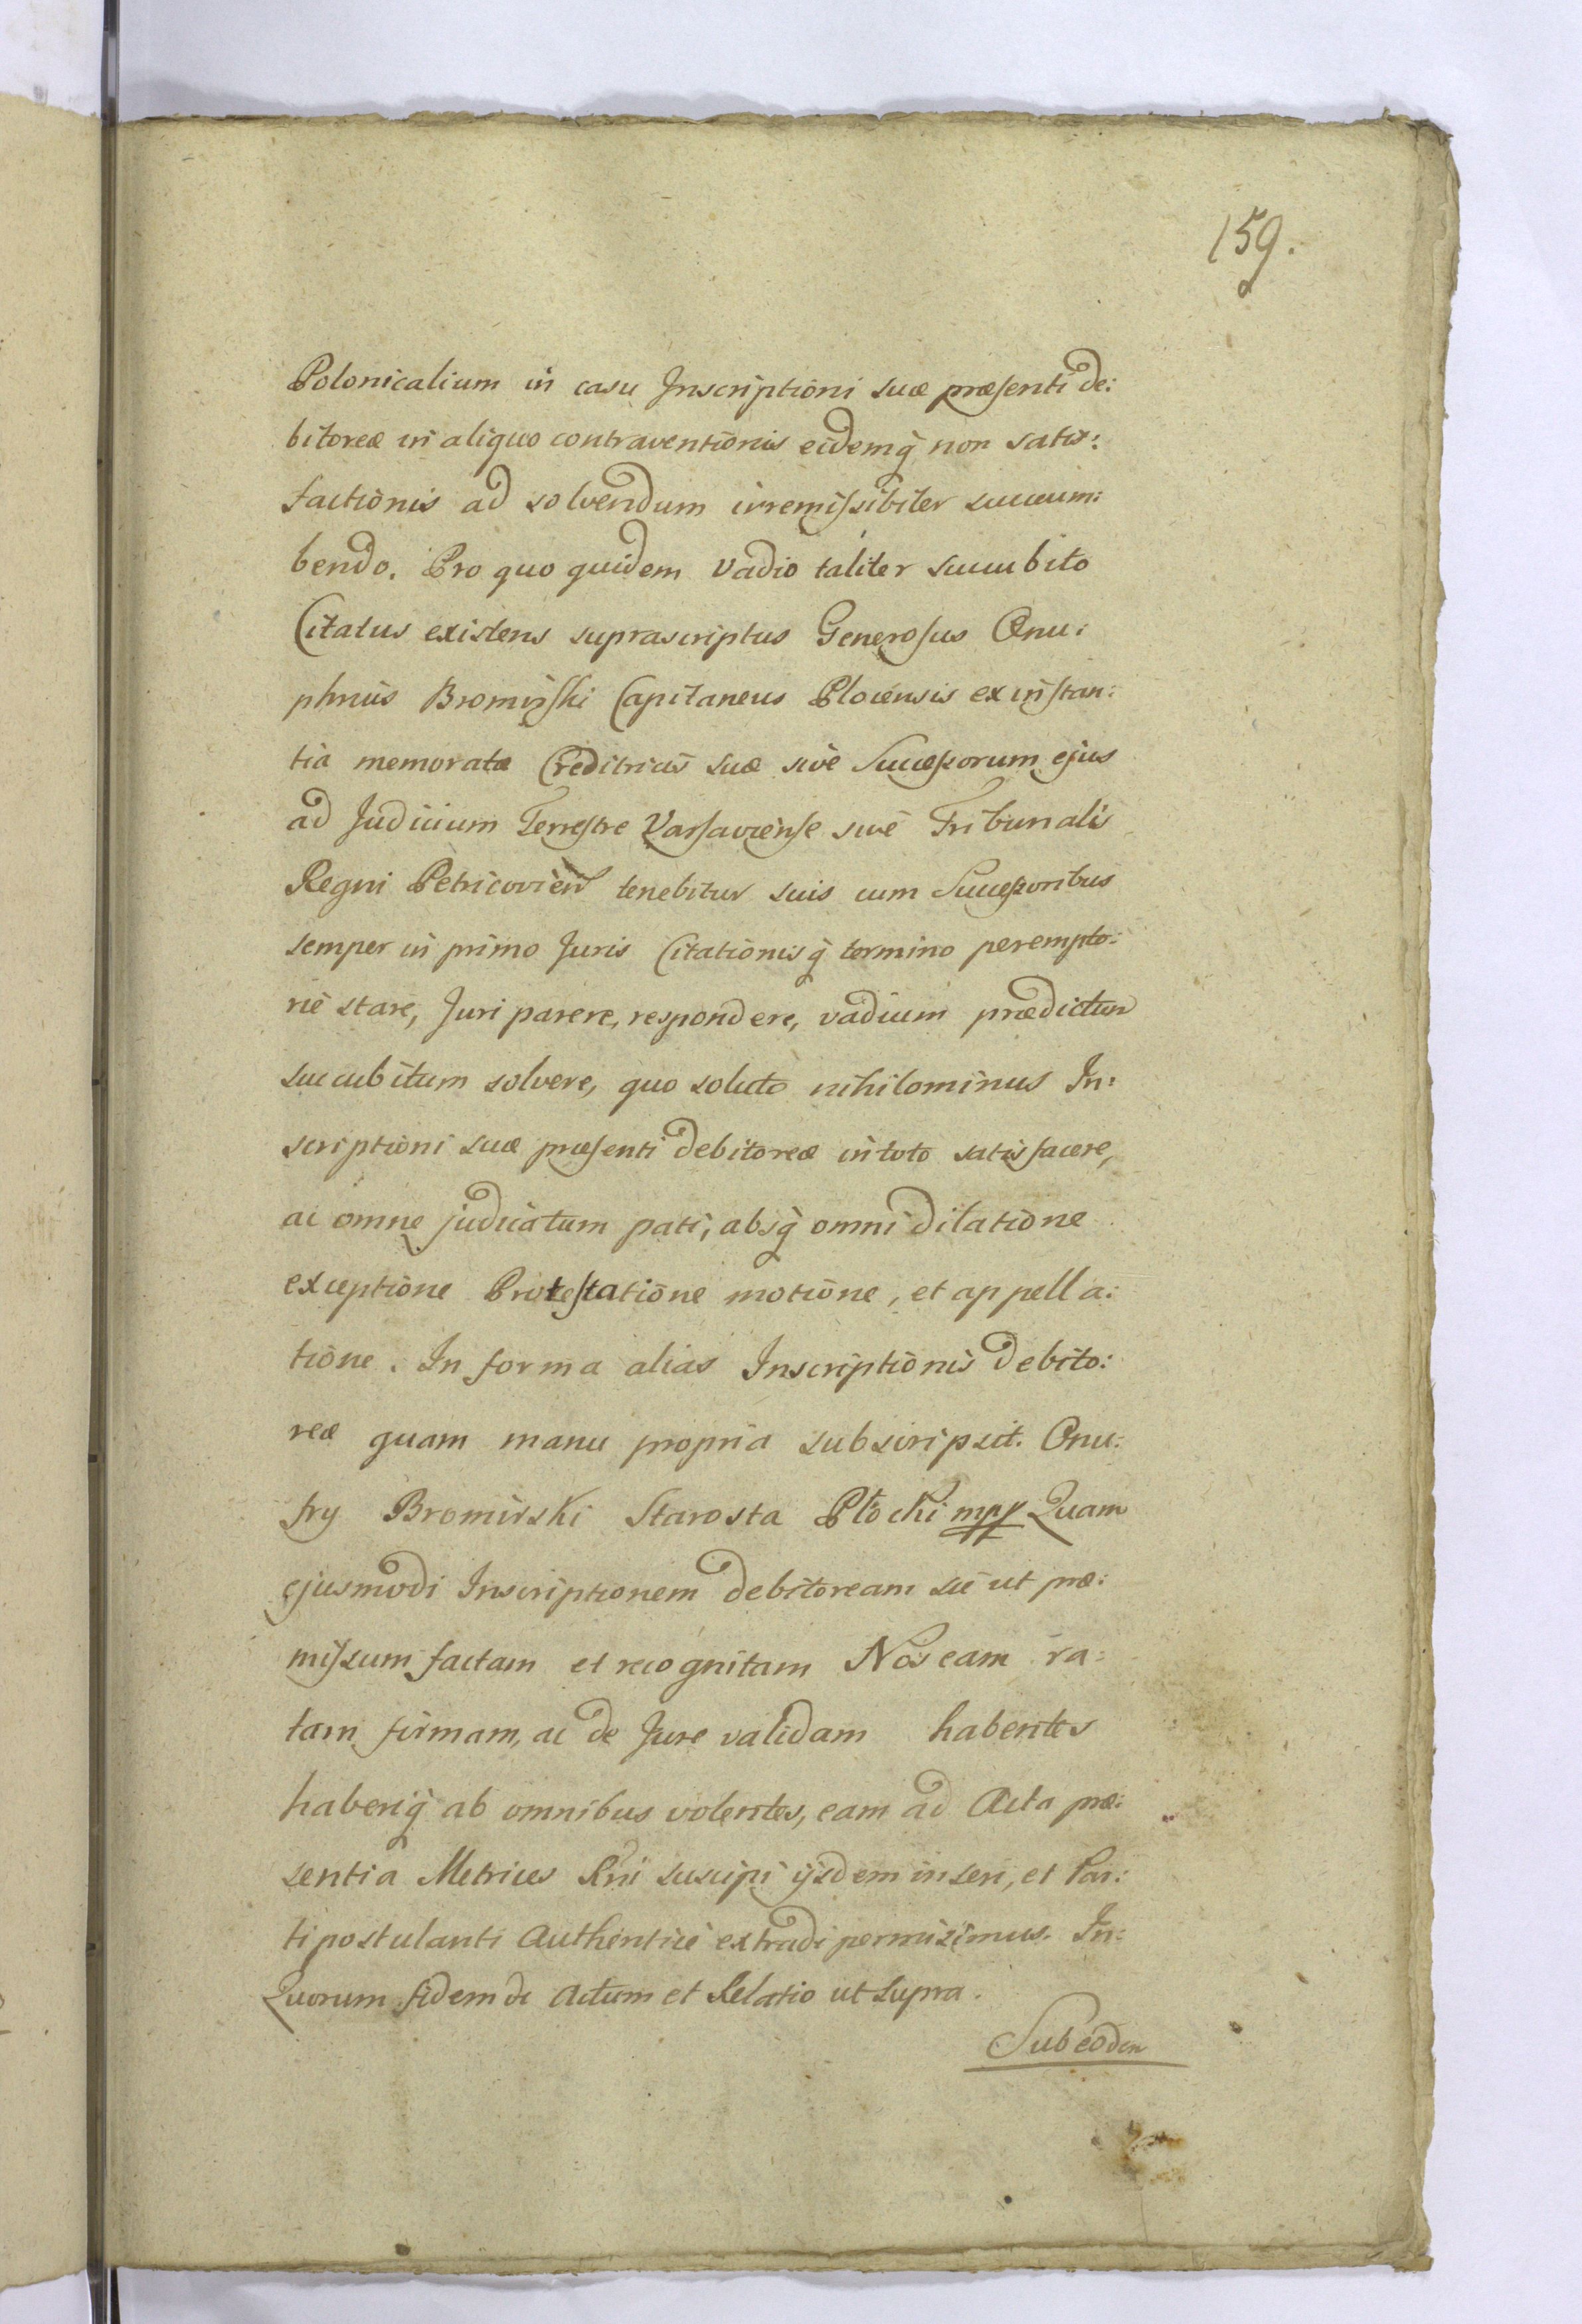 159.
Polonicalium in casu Inscriptioni suæ præsenti de:
bitoreæ in aliquo contraventionis eidemq̀ non satis:
factionis ad solvendum irremissibiter succum:
bendo. Pro quo quidem vadio taliter succubito
Citatus existens suprascriptus Generosus Onu:
phrius Bromirski Capitaneus Plocensis ex instan:
tia memoratæ Creditricis suæ sivè Successorum ejus
ad Judicium Terrestre Varsaviense sivè Tribunalis
Regni Petricovien tenebitur suis cum Successoribus
semper in primo Juris Citationisq̀ termino perempto:
riè stare, Juri parere, respondere, vadium prædictum
succubitum solvere, quo soluto nihilominus In:
scriptioni suæ præsenti debitoreæ in toto satisfacere,
ac omne judicatum pati, absq̀ omni dilatione
exceptione Protestatione motione, et appella:
tione. In forma alias Inscriptionis debito:
reæ quam manu propria subscripsit. Onu:
fry Bromirski Starosta Płocki mpp Quam
ejusmodi Inscriptionem debitoream sic ut præ:
missum factam et recognitam Nos eam ra:
tam, firmam, ac de Jure validam habentes
haberiq̀ ab omnibus volentes, eam ad Acta præ:
sentia Metrices Rni suscipi ijsdem inseri, et Par:
ti postulanti Authenticè extradi permisimus. In:
Quorum fidem dc Actum et Relatio ut supra.
Sub eodem